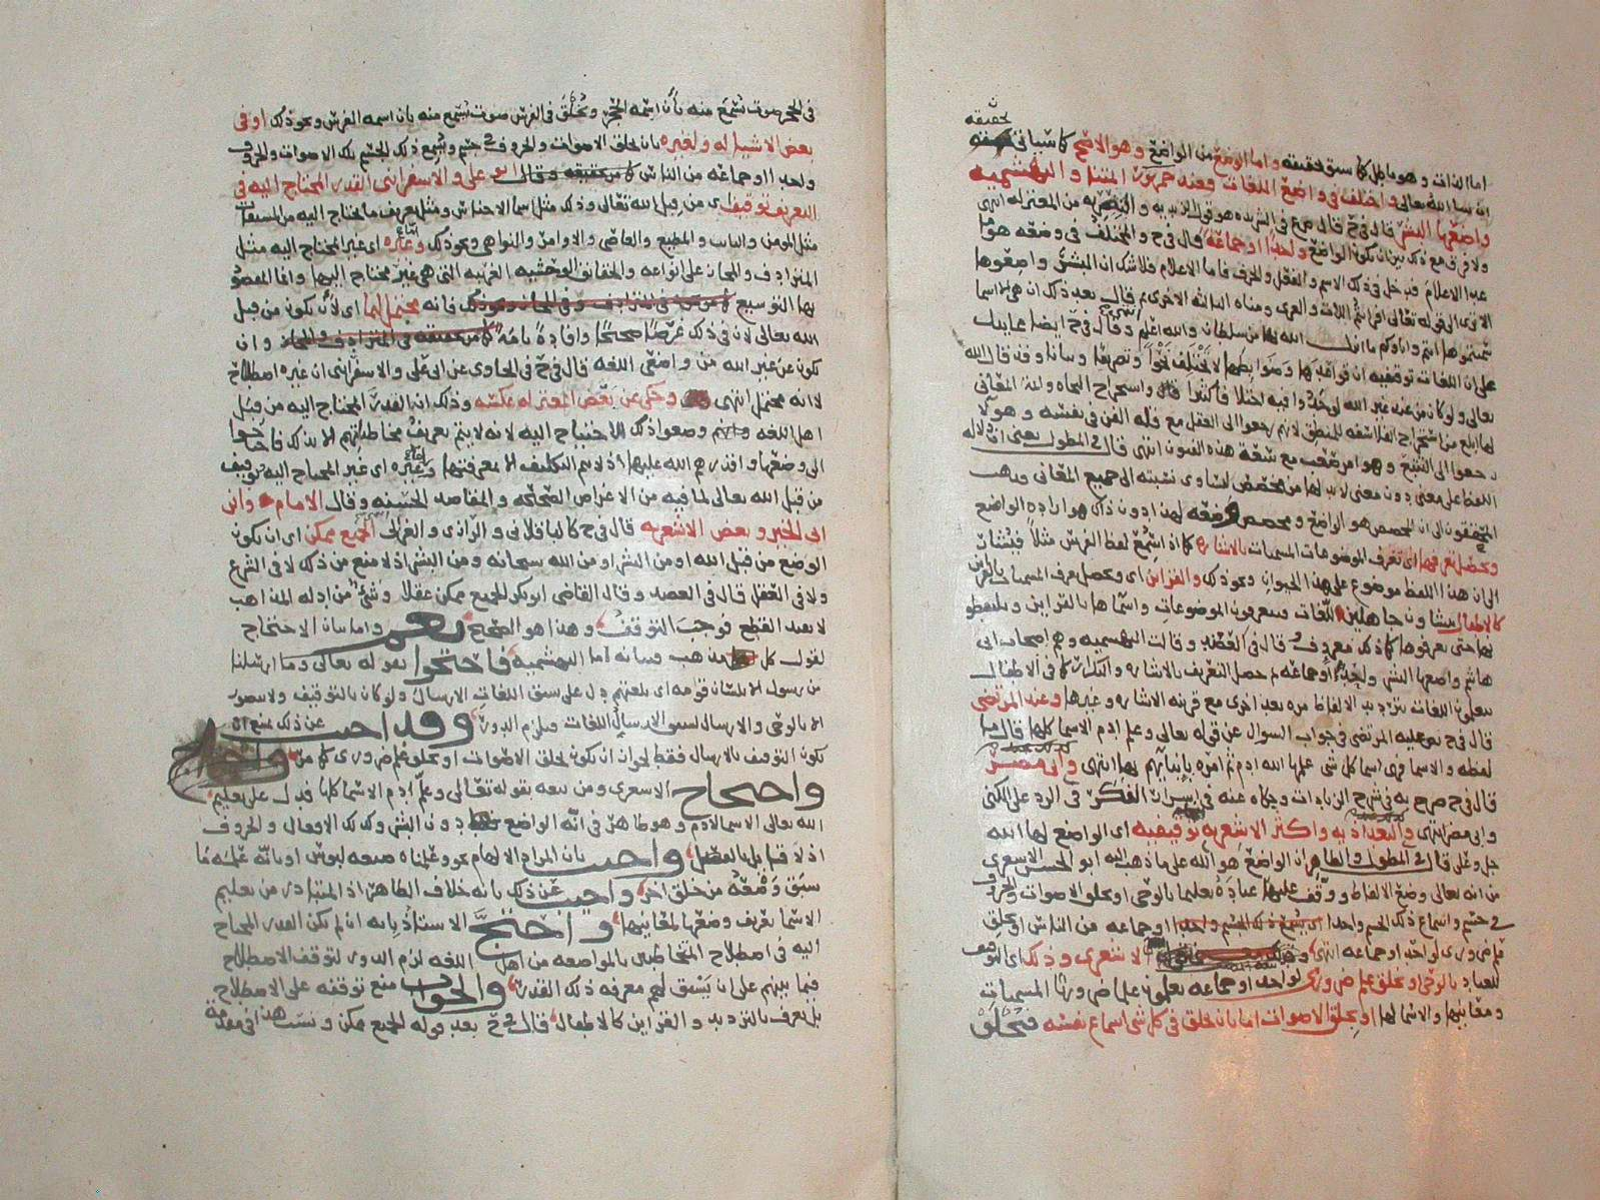 تحقيقه
اما الذات وهو ما بل كما سبق تحقيقه واما الوضع من الواضع وهو الاصح كما سياتي
ان شا الله تعالى واختلف في واضع اللغات فعند جمهور المتنا والبهشميه
واضعها البشر قال في ح قال من المعتزله انتهى
ولا فرق مع ذلك بين ان يكون الواضع واحدًا او جماعة قال في ح والمختلف في وضعه هو ما
عدا الاعلام فيدخل في ذلك الاسم والفعل والحرف فاما الاعلام فلا شك ان البشر واضعوها
الا ترى الى قوله تعالى افرايتم اللات والعزى ومناة الثالثة الاخرى ثم قال بعد ذلك ان هي الا اسما
سميتموها انتم واباؤكم ما انزل الله بها من سلطان والله اعلم وقال في ح ايضا
على ان اللغات توقيفيه ان قواعدها وضوابطها لا تختلف نحوًا وتصريفا وبيانا وقد قال الله
تعالى ولو كان من عند غير الله لوجدوا فيه اختلافا كثيرا واستخراج النحاه وائمة المعاني
لها ابلغ من استخراج الفلاسفه للمنطق لانهم رجعوا الى العقل مع قله الفن في نفسه وهو لا
رجعوا الى التتبع وهو امر صعب مع سعة هذه الفنون انتهى قال في المطول يعنى ان دلاله
اللفظ على معنى دون معنى لا بد لها من مخصص لتساوى نسبته الى جميع المعاني وذهب
المحققون الى ان المخصص هو الواضع ومخصص وضعه لهذا دون ذاك هو اراده الواضع
ويحصل تعرفها اي تعرف الموضوعات المسميات بالاشاره كما اذا سمع لفظ الفرس مثلاً فيشار
الى ان هذا اللفظ موضوع على هذا الحيوان ونحو ذلك والقراين اي ويحصل تعرف المسميات بالقراين
كالاطفال ينشاون جاهلين للغات فيعرفون الموضوعات واسماها بالقراين ويلفظو
بها حتى يعرفوها كما ذلك معروف قال في العضد وقالت البهشميه وهم اصحاب ابي
هاشم واضعها البشر واحدًا او جماعه ثم حصل التعريف بالاشاره والتكرار كما في الاطفال
يتعلمون اللغات بترديد الالفاظ مره بعد اخرى مع قرينه الاشاره وغيرها وعند المرتضى
قال في ح نص عليه المرتضى في جواب السوال عن قوله تعالى وعلم ادم الاسما كلها فقال
لفظه والاسما فهى اسما كل شى علمها الله ادم ثم امره بانبايهم بها انتهى وابى مضر
قال في ح صرح به في شرح الزيادات وحكاه عنه في اسرار الفكر في الرد على الكنى
وابى مضر انتهى والبغداديه واكثر الاشعريه توقيفيه اي الواضع لها الله
جل وعلى قال في المطول والظاهر ان الواضع هو الله على ما ذهب اليه ابو الحسن الاشعرى
من انه تعالى وضع الالفاظ ووقف عليها عباده تعليما بالوحى او بخلق الاصوات والحروف
في جسم واسماع ذلك الجسم واحدا او جماعه من الناس او بخلق
علم ضرورى لواحد او جماعه انتهى الاشعرى وذلك اي التوقيف
للعباد بالوحى او بخلق علم ضرورى لواحد او جماعه يعلمون علما ضروريًا المسميات
ومعانيها والاسما لها او بخلق الاصوات اما بان يخلق في كل شى اسماع نفسه فيخلق
في الحجر صوت يسمع منه بان اسمه الحجر ويخلق في الفرس صوت يسمع منه بان اسمه الفرس ونحو ذلك او في
بعض الاشيا له ولغيره بان يخلق الاصوات والحروف في جسم ويسمع ذلك الجسم تلك الاصوات والحروف
واحدا او جماعه من الناس كما مر تحقيقه وقال ابو على والاسفراينى القدر المحتاج اليه في
التعريف توقيف اي من قبل الله تعالى وذلك مثل اسما الاجناس ومثل تعريف ما يحتاج اليه من المسميات
مثل المومن والتايب والمطيع والعاصى والاوامر والنواهى ونحو ذلك وغيره اي غير المحتاج اليه مثل
المترادف والمجاز على انواعه والحقايق الوحشيه الغريبه التى هى غير محتاج اليها وانما المقصود
بها التوسيع فانه محتمل لهما اي لان يكون من قبل
الله تعالى لان في ذلك غرضًا صحيحًا وافادة تامة وان
يكون عن غير الله من واضعى اللغه قال في ح في الحاوى عن ابى على والاسفراينى ان غيره اصطلاح
لا انه محتمل انتهى وحكى عن بعض المعتزله عكسه وذلك ان القدر المحتاج اليه من قبل
اهل اللغه وانهم وضعوا ذلك للاحتياج اليه لانه لا يتم تعريف مخاطباتهم الا بذلك فاحتاجوا
الى وضعها واقدرهم الله عليها اذ لا يتم التكليف الا بمعرفتها وغيره اي غير المحتاج اليه توقيف
من قبل الله تعالى لما فيه من الاغراض الصحيحه والمقاصد الحسنه وقال الامام وابن
ابى الخير وبعض الاشعريه قال في ح كالباقلانى والرازى والغزالى الجميع ممكن اي ان يكون
الوضع من قبل الله او من البشر او من الله سبحانه ومن البشر اذ لا منع من ذلك لا في الشرع
ولا في العقل قال في العضد وقال القاضى ابو بكر الجميع ممكن عقلا وشئ من ادله المذاهب
لا يفيد القطع فوجب التوقف وهذا هو الصحيح نعم واما بيان الاحتجاج
لقول كل مذهب فبيانه اما البهشميه فاحتجوا بقوله تعالى وما ارسلنا
من رسول الا بلسان قومه اي بلغتهم دل على سبق اللغات الارسال ولو كان بالتوقيف ولا يتصور
الا بالوحى والارسال لسبق الارسال اللغات فيلزم الدور وقد اجيب عن ذلك بمنع ان
يكون التوقيف بالارسال فقط لجواز ان يكون بخلق الاصوات او بخلق علم ضرورى كما مر
واحتجاج الاشعرى ومن تبعه بقوله تعالى وعلم ادم الاسما كلها فدل على تعليم
الله تعالى الاسما لادم وهو ظاهر في انه الواضع دون البشر وكذلك الافعال والحروف
اذ لا قايل بالفصل واجيب بان المراد الالهام نحو وعلمناه صنعه لبوس او بانه علمه ما
سبق وضعه من خلق اخر واجيب عن ذلك بانه خلاف الظاهر اذ المتبادر من تعليم
الاسما تعريف وضعها لمعانيها واحتج الاستاذ بانه ان لم يكن القدر المحتاج
اليه في اصطلاح المتخاطبين بالمواضعه من اهل اللغه لزم الدور لتوقف الاصطلاح
فيما بينهم على ان يسبق لهم معرفه ذلك القدر والجواب منع توقفه على الاصطلاح
بل تعرف بالترديد والقراين كالاطفال قال في ح بعد قوله الجميع ممكن ونسب هذا في مقدمة